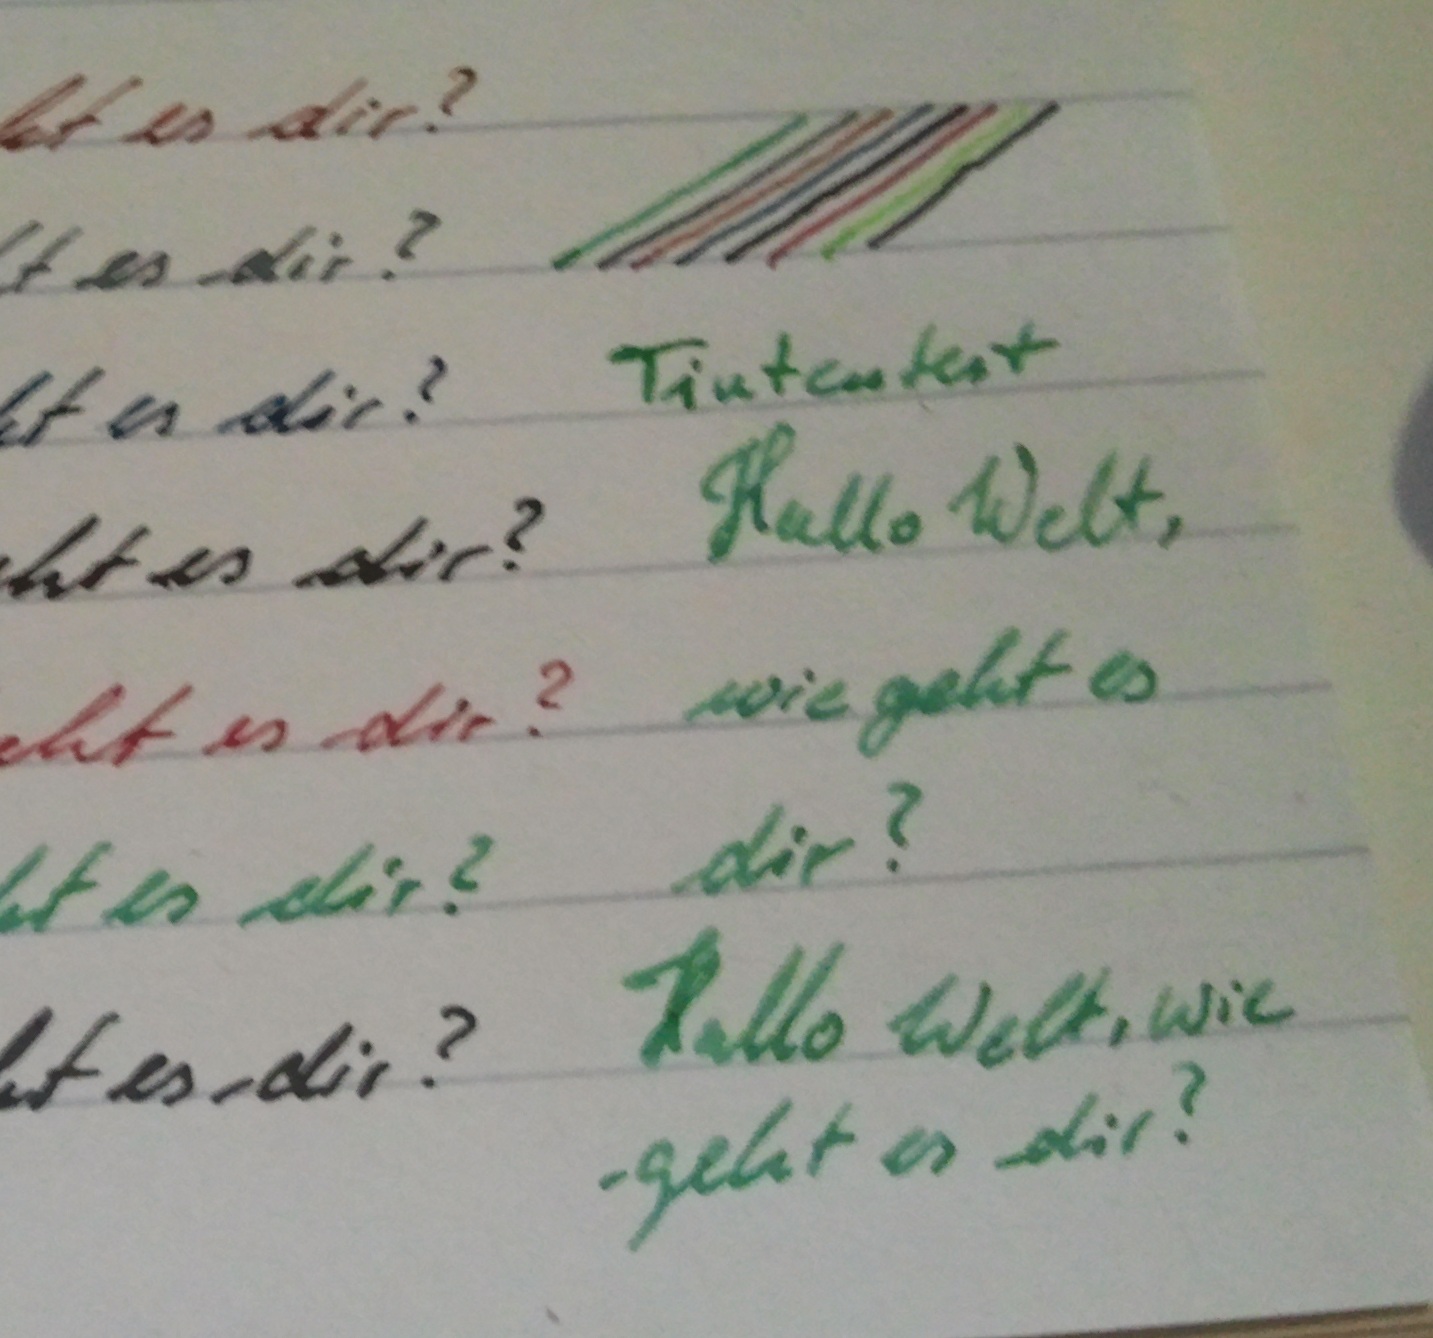 ht es dir?
t es dir?
ht es dir?
Tintentest
eht es dir?
Hallo Welt,
eht es dir?
wie geht es
ht es dir?
dir?
ht es dir?
Hallo Welt, wie
geht es dir?